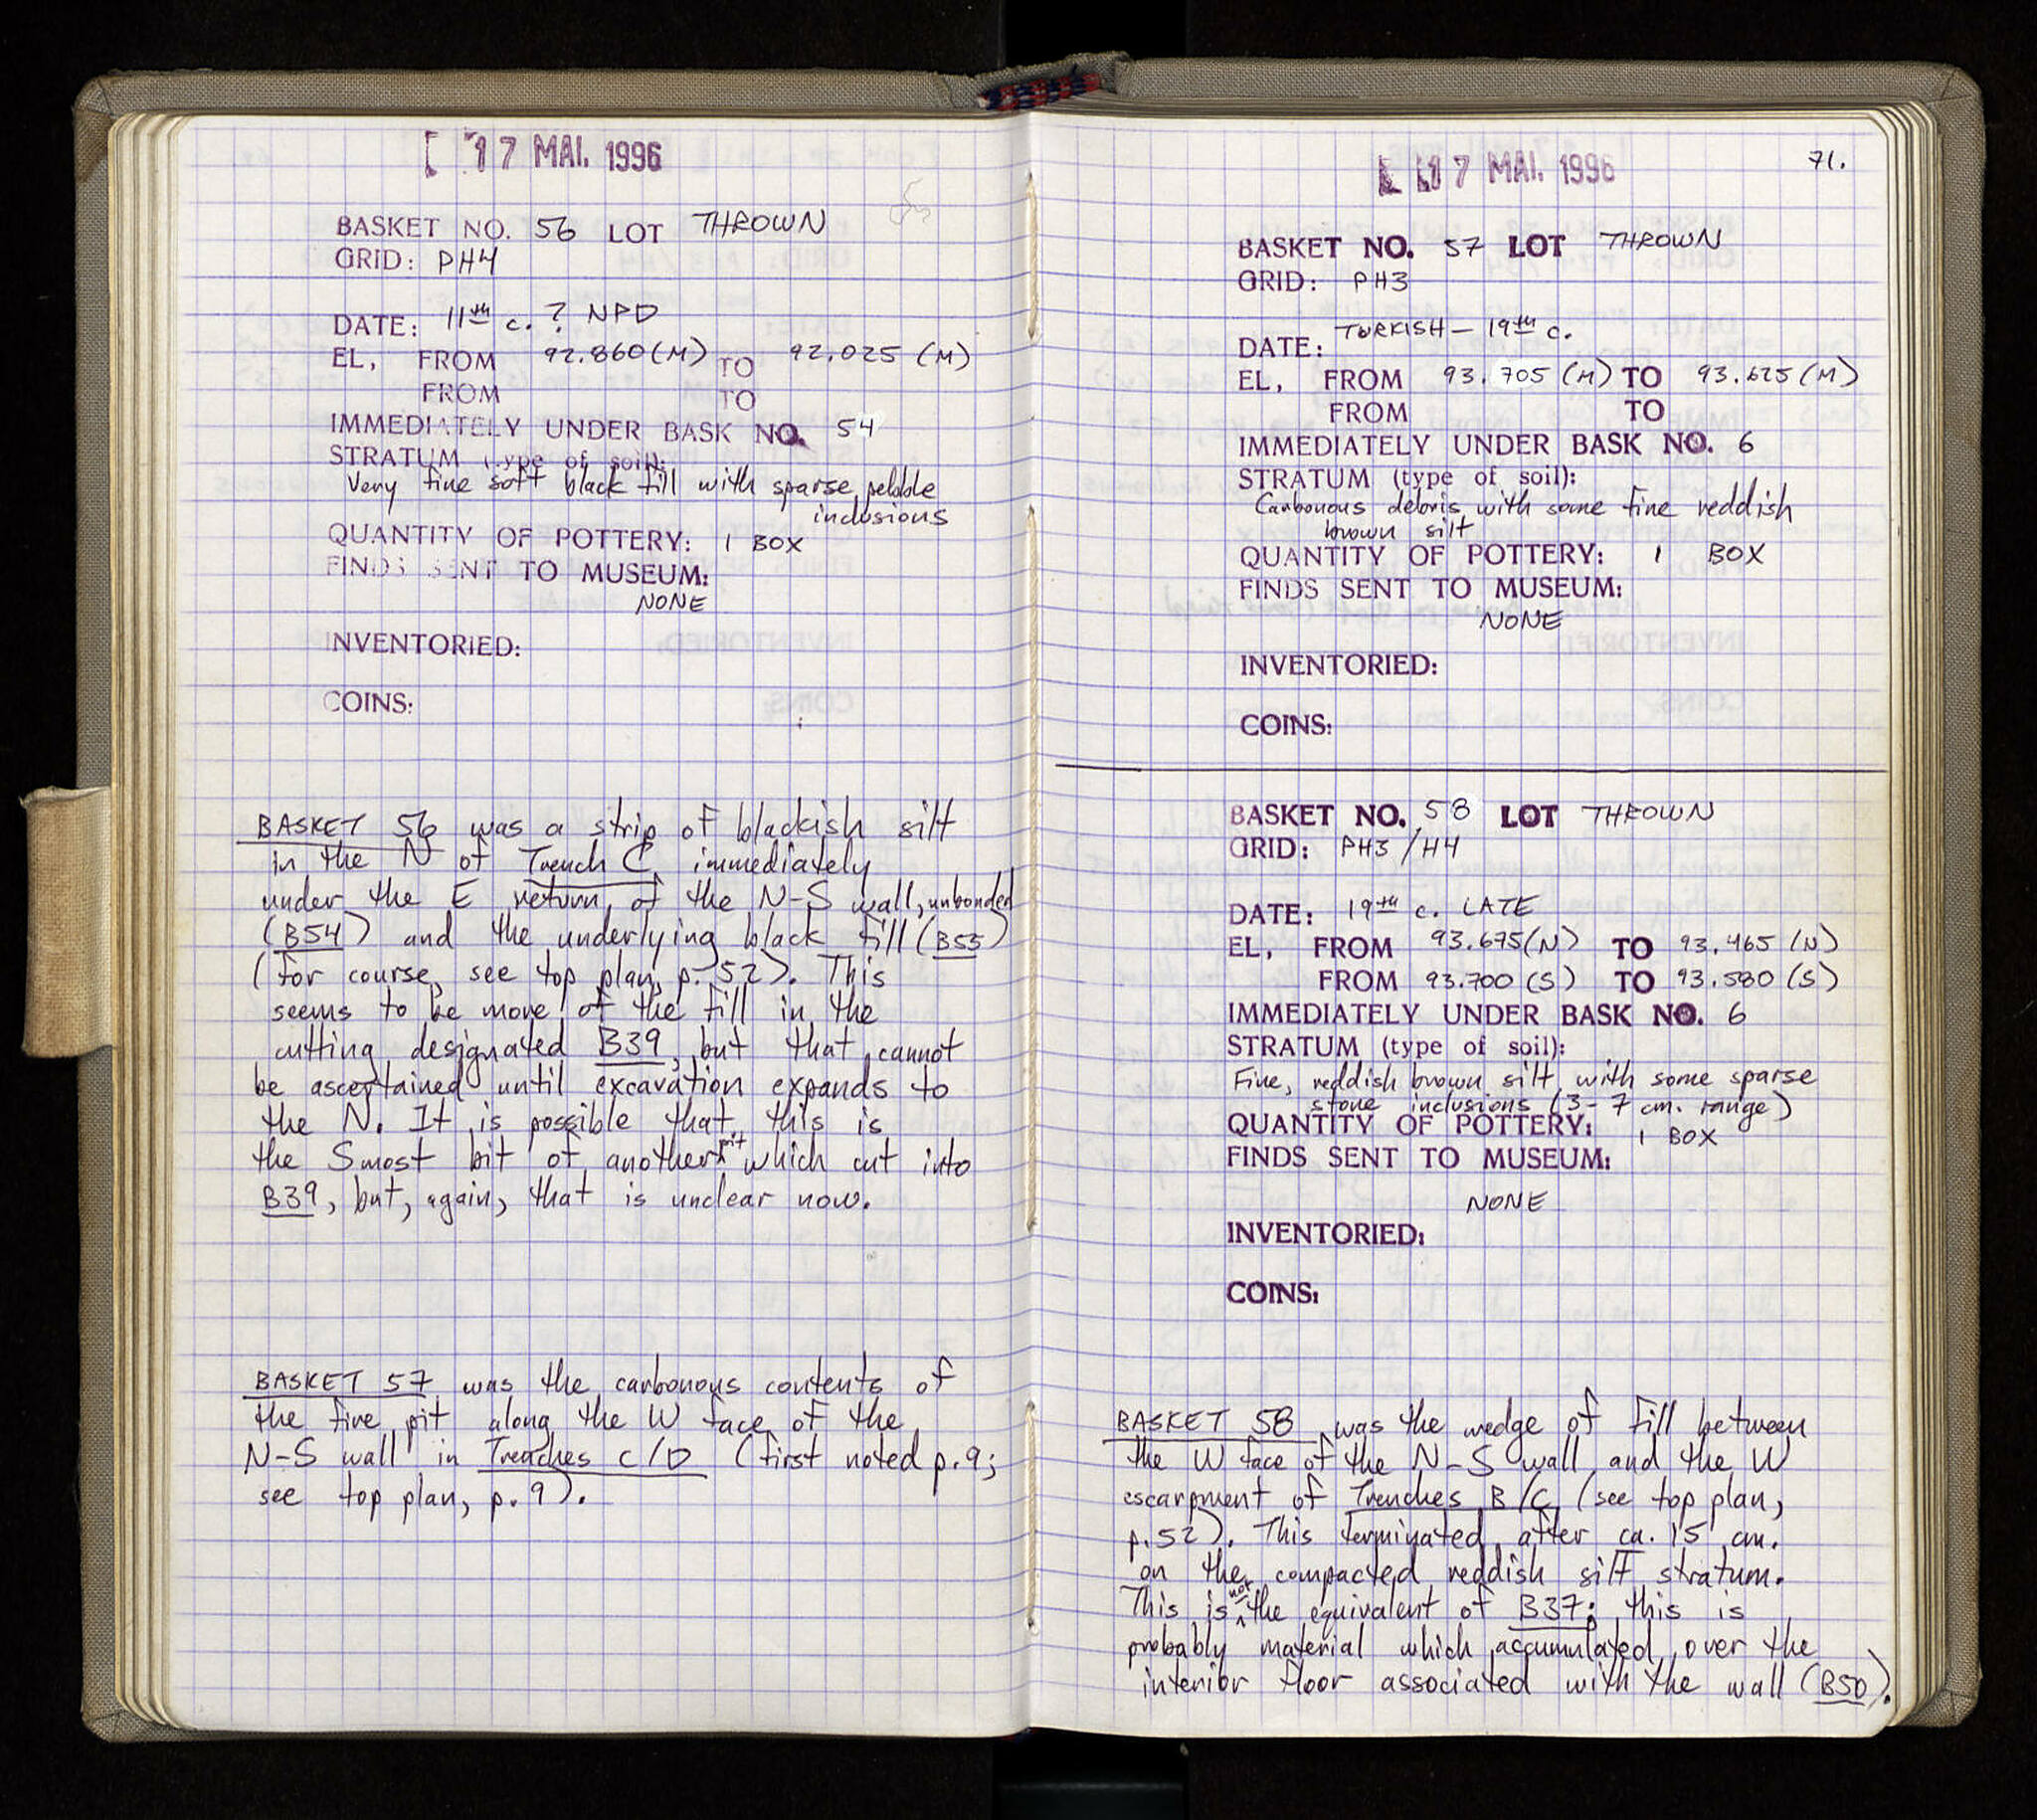 17 MAI. 1996
BASKET NO. 56 LOT THROWN
GRID: PH4
DATE: 11th c. ? NPD
EL, FROM 92.860(M) TO 92.025 (M)
FROM TO
IMMEDIATELY UNDER BASK NO. 54
STRATUM (type of soil):
Very fine soft black fill with sparse pebble
inclusions
QUANTITY OF POTTERY: 1 BOX
FINDS SENT TO MUSEUM:
NONE
INVENTORIED:
COINS:
BASKET 56 was a strip of blackish silt
in the N of Trench C, immediately
under the E return of the N-S wall, unbonded
(B54) and the underlying black fill (B55)
(for course, see top plan, p. 52). This
seems to be more of the fill in the
cutting designated B39, but that cannot
be ascertained until excavation expands to
the N. It is possible that this is
the Smost bit of another pit which cut into
B39, but, again, that is unclear now.
BASKET 57 was the carbonous contents of
the fire pit along the W face of the
N-S wall in Trenches C/D (first noted p. 9;
see top plan, p. 9).
17 MAI. 1996
71.
BASKET NO. 57 LOT THROWN
GRID: PH3
DATE: TURKISH - 19th c.
EL, FROM 93.705 (M) TO 93.625 (M)
FROM TO
IMMEDIATELY UNDER BASK NO. 6
STRATUM (type of soil):
Carbonous debris with some fine reddish
brown silt
QUANTITY OF POTTERY: 1 BOX
FINDS SENT TO MUSEUM:
NONE
INVENTORIED:
COINS:
BASKET NO. 58 LOT THROWN
GRID: PH3/H4
DATE: 19th c. LATE
EL, FROM 93.675(N) TO 93.465 (N)
FROM 93.700 (S) TO 93.580 (S)
IMMEDIATELY UNDER BASK NO. 6
STRATUM (type of soil):
Fine, reddish brown silt with some sparse
stone inclusions (3-7 cm. range)
QUANTITY OF POTTERY: 1 BOX
FINDS SENT TO MUSEUM:
NONE
INVENTORIED:
COINS:
BASKET 58 was the wedge of fill between
the W face of the N-S wall and the W
escarpment of Trenches B/C (see top plan,
p. 52). This terminated after ca. 15 cm.
on the compacted reddish silt stratum.
This is not the equivalent of B37; this is
probably material which accumulated over the
interior floor associated with the wall (B50).